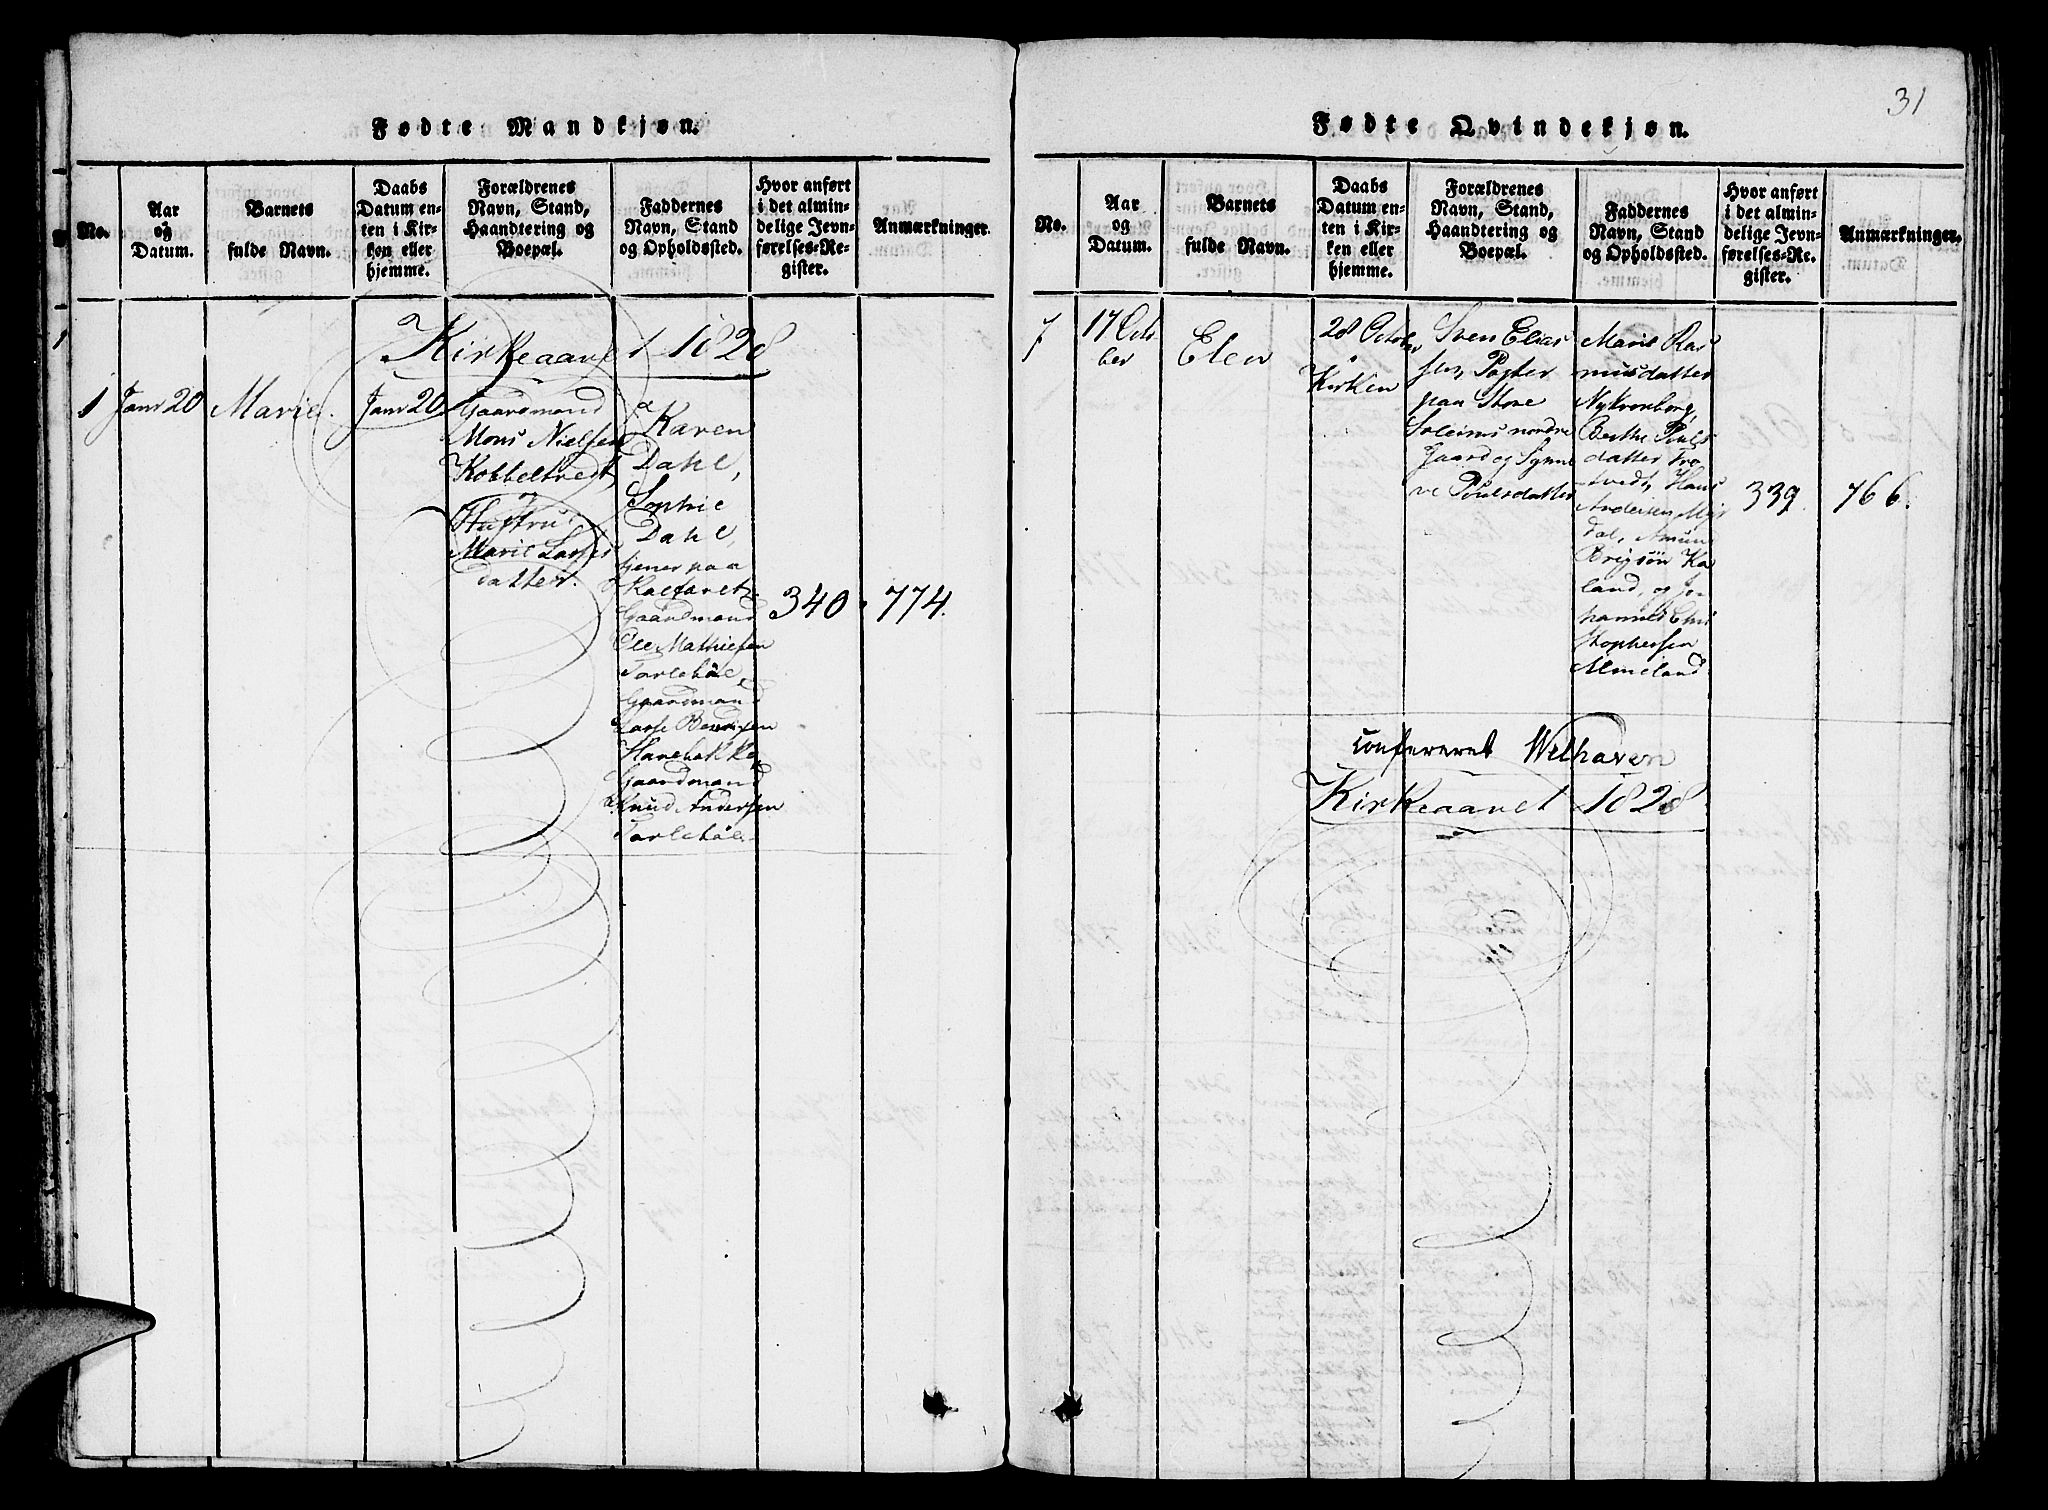 31
Fødte Mandkjøn.
No.
Aar
og
Datum.
Barnets
fulde Navn.
Daabs
Datum en-
ten i Kir-
ken eller
hjemme.
Forældrenes
Navn, Stand,
Haandtering og
Boepæl.
Faddernes
Navn, Stand
og Opholdssted.
Hvor anført
i det almin-
delige Jevn-
førelses-Re-
gister.
Anmærkninger.
Kirkeaaret 1828
1
Janr 20
Marie.
Janr 20
Gaardmand
Mons Nielsen
Kobbeltvedt,
og
Hustru
Marie Larses
datter.
Karen
Dahl,
Sophie
Dahl,
tjener paa
Kalfaret.
Gaardmand
Ole Mathiesen
Tarlebøe,
Gaardmand
Larse
Harebakke,
Gaardmand
Knud Andersen
Tarlebøe.
340
774.
Fødte Qvindekjøn.
No.
Aar
og
Datum.
Barnets
fulde Navn.
Daabs
Datum en-
ten i Kir-
ken eller
hjemme.
Forældrenes
Navn, Stand,
Haandtering og
Boepæl.
Faddernes
Navn, Stand
og Opholdssted.
Hvor anført
i det almin-
delige Jevn-
førelses-Re-
gister.
Anmærkninger.
7
17 Octo
ber
Elen
28 October
Kirken
Sven Elias
sen, Pagter
paa Store
Soleims nordre
Gaard og Synne
ve Poulsdatter
Marie Ras
musdatter
Nykronborg,
Berthe Pouls
datter Tro
tvedt, Hans
Andersen
dal,
Ka
land, og Jo
hannes Chri
stophersen
Almeland
339
766.
Confereret Welhaven
Kirkeaaret 1828